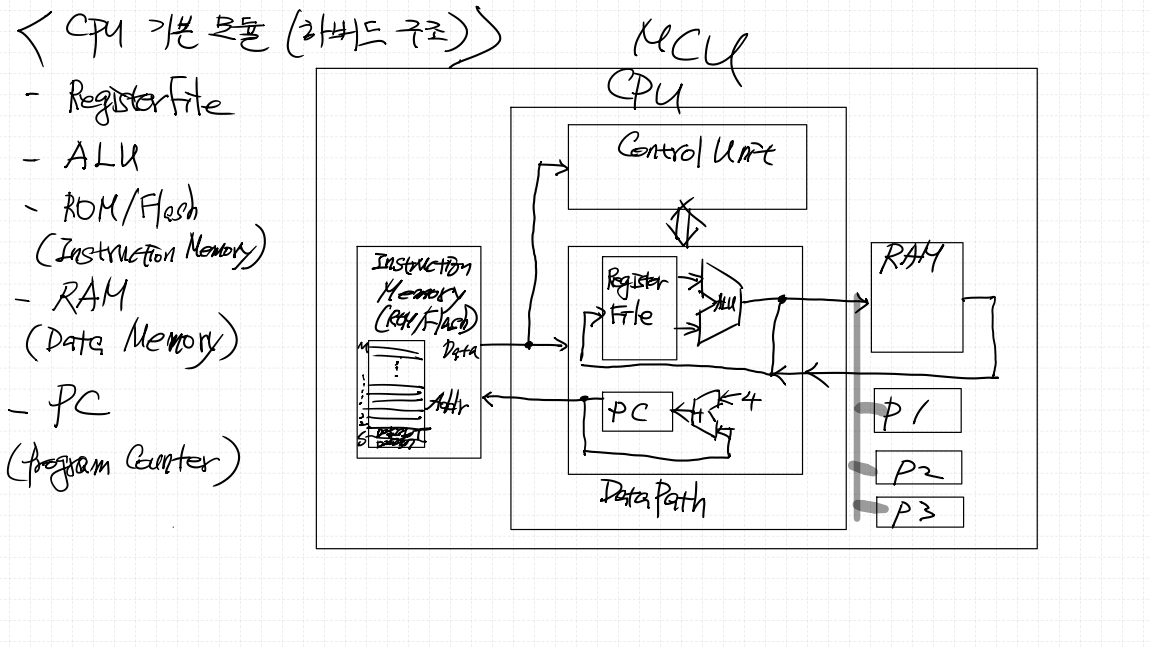 < CPU 기본 모듈 (하버드 구조) >
- RegisterFile
- ALU
- ROM/Flash
(Instruction Memory)
- RAM
(Data Memory)
- PC
(Program Counter)
MCU
CPU
Control Unit
Instruction
Memory
(ROM/Flash)
Data
Addr
Register
File
ALU
PC
+
4
DataPath
RAM
P1
P2
P3